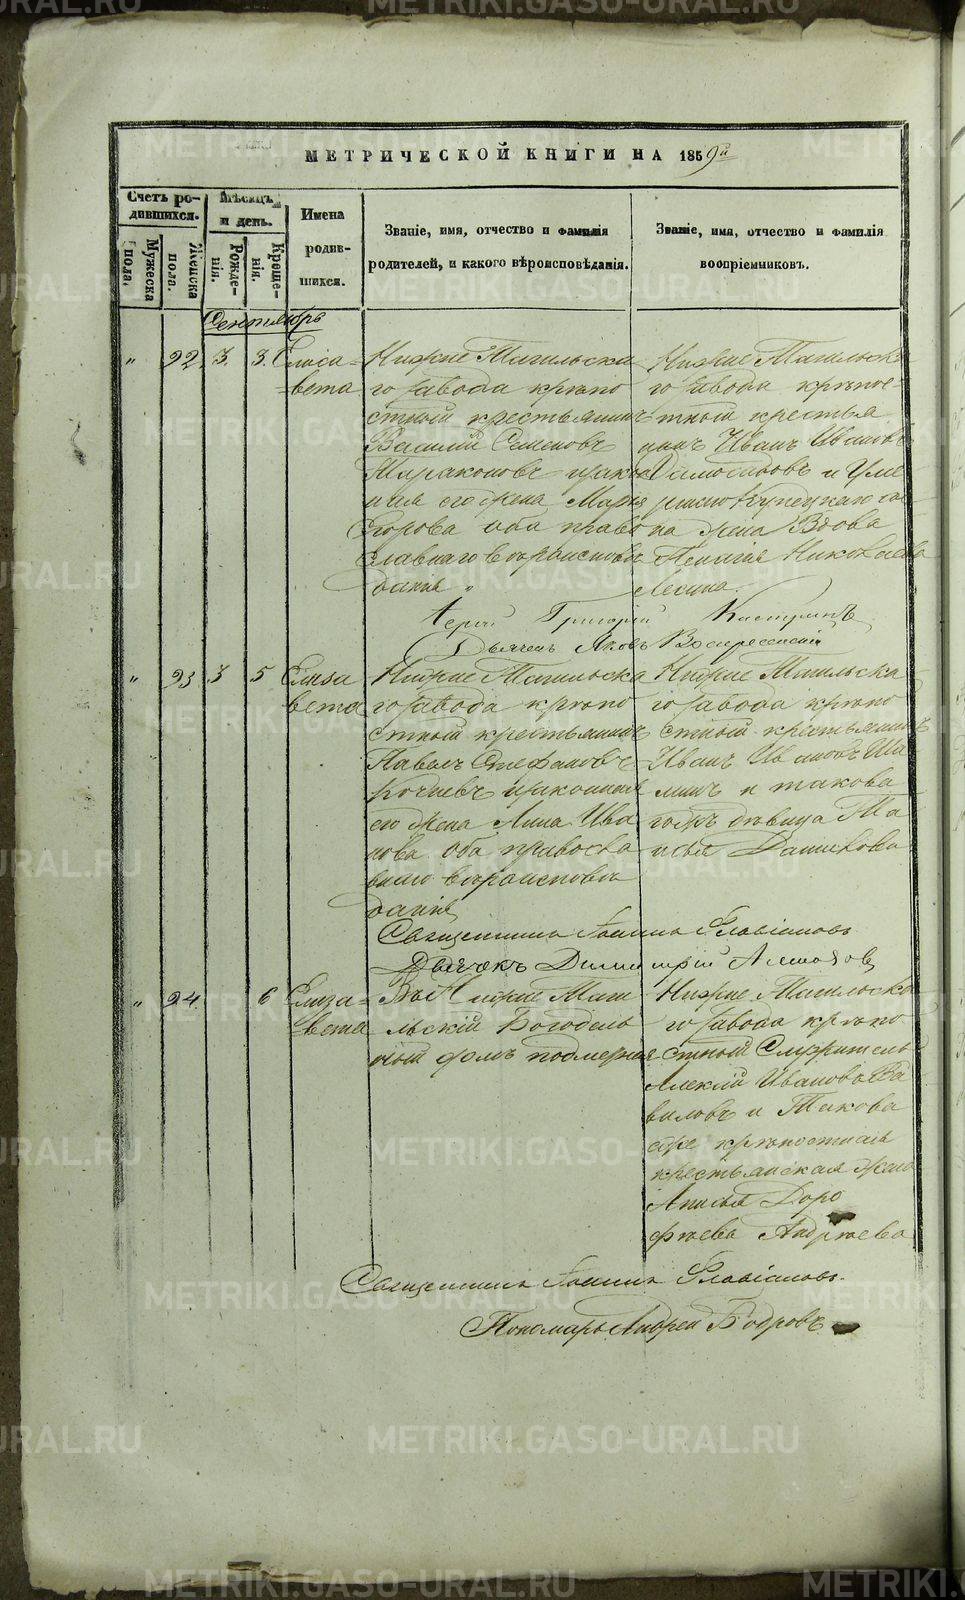 МЕТРИЧЕСКОЙ КНИГИ НА 1859й
Счетъ ро-
дившихся.
Мужеска
пола.
Женска
пола.
Мѣсяцъ
и день.
Рожде-
нія.
Креще-
нія.
Имена
родив-
шихся.
Званіе, имя, отчество и фамилія
родителей, и какого вѣроисповѣданія.
Званіе, имя, отчество и фамилія
воспріемниковъ.
Сентябрь
" 22. 3. 3. Елиса-
вета
Нижне Тагильска
го завода крѣпо
стный крестьянинъ
Василій Семеновъ
законная его жена Марья
Егорова оба право
славнаго вѣроисповѣ
данія "
Нижне Тагильска
го завода крѣпос-
тный крестья
нинъ Иванъ Ивановъ
и Уме
ршаго Купецкаго
жена Вдова
Пелагія Николаева
Іерей Григорій
Дьячекъ Яковъ Воскресенскій
" 23 3 5 Елиза
вета
Нижне Тагильска
го завода крѣпо
стный крестьянинъ
Павелъ Стефановъ
Кочневъ законная
его жена Анна Ива
нова оба правосла
внаго вѣроисповѣ
данія
Нижне Тагильска
го завода крѣпо
стный крестьянинъ
Иванъ Ивановъ Ша
минъ и такова
гожъ дѣвица Та
исья Данилова
Священникъ Іоаннъ Флавіановъ
Дьячекъ Димитрій
" 24 6 Елиза-
вета
Въ Нижне Таги
льскій Богодель
ный домъ
Нижне Тагильска
го завода крѣпо
стный Служитель
Алексѣй Ивановъ Ва
виловъ и Такова
же крѣпостная
крестьянская жена
Анисья Доро
фѣева Андрѣева
Священникъ Іоаннъ Флавіановъ.
Пономарь Андрей Бодровъ
METRIKI.GASO-URAL.RU